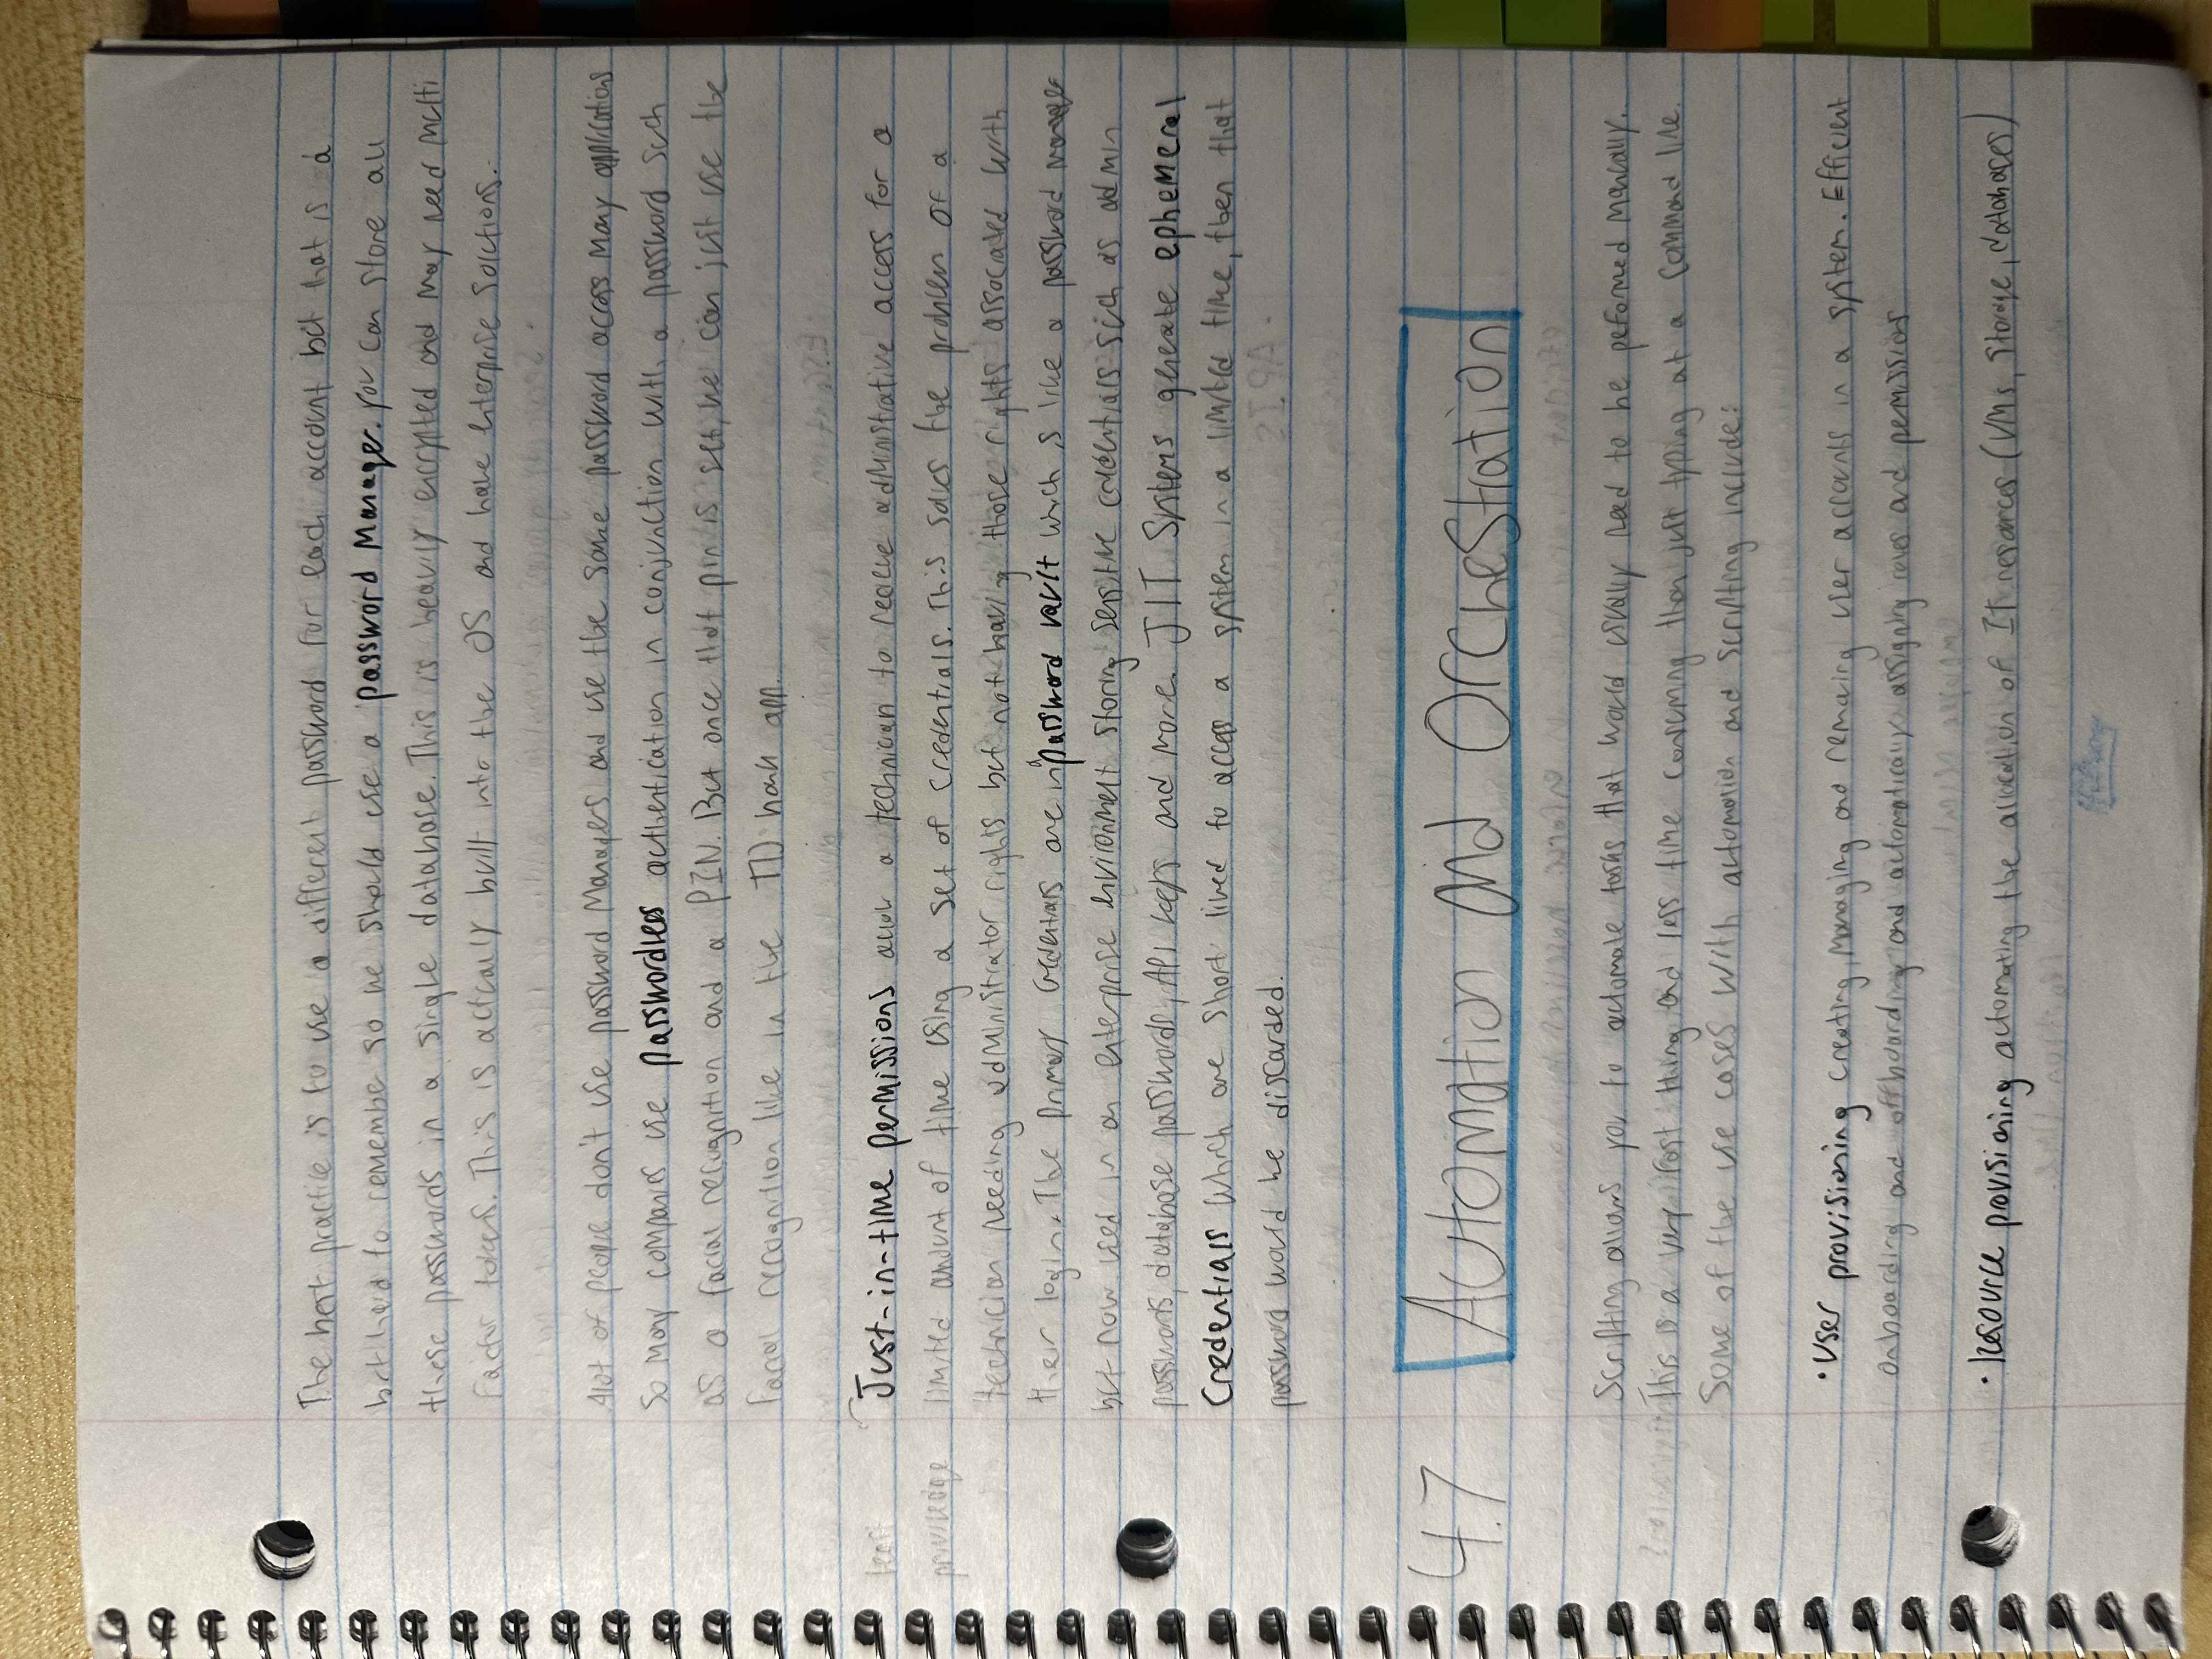 The best practice is to use a different password for each account but that is a
bit hard to remembe so we should use a password Manager. You can store all
these passwords in a single database. This is heavily encrypted and may need multi
factor tokens. This is actually built into the OS and have enterprise solutions.
Alot of people don't use password Managers and use the same password across many applications
so many companies use passwordless authentication in conjunction with a password such
as a facial recognition and a PIN. But once that pin is set, we can just use the
facial recognition like in the TD bank app.
least
priviledge
Just-in-time permissions allow a technician to recieve administrative access for a
limited amount of time using a set of credentials. This solves the problem of a
technician needing administrator rights but not having those rights associated with
their login. The primary credentials are in a password vault which is like a password manager
but now used in an enterprise environment storing sensitive credentials such as admin
passwords, database passwords, API keys and more. JIT Systems generate ephemeral
Credentials which are short lived to access a system in a limited time, then that
password would be discarded.
4.7 Automation and Orchestration
Scripting allows you to automate tasks that would usually need to be peformed manually.
This is a very fast thing and less time consuming than just typing at a command line.
Some of the use cases with automation and scripting include:
· User provisioning creating, managing and removing user accounts in a system. Efficient
onboarding and offboarding and automatically assigning roles and permissions
· Resource provisioning automating the allocation of IT resources (VMs, storage, databases)